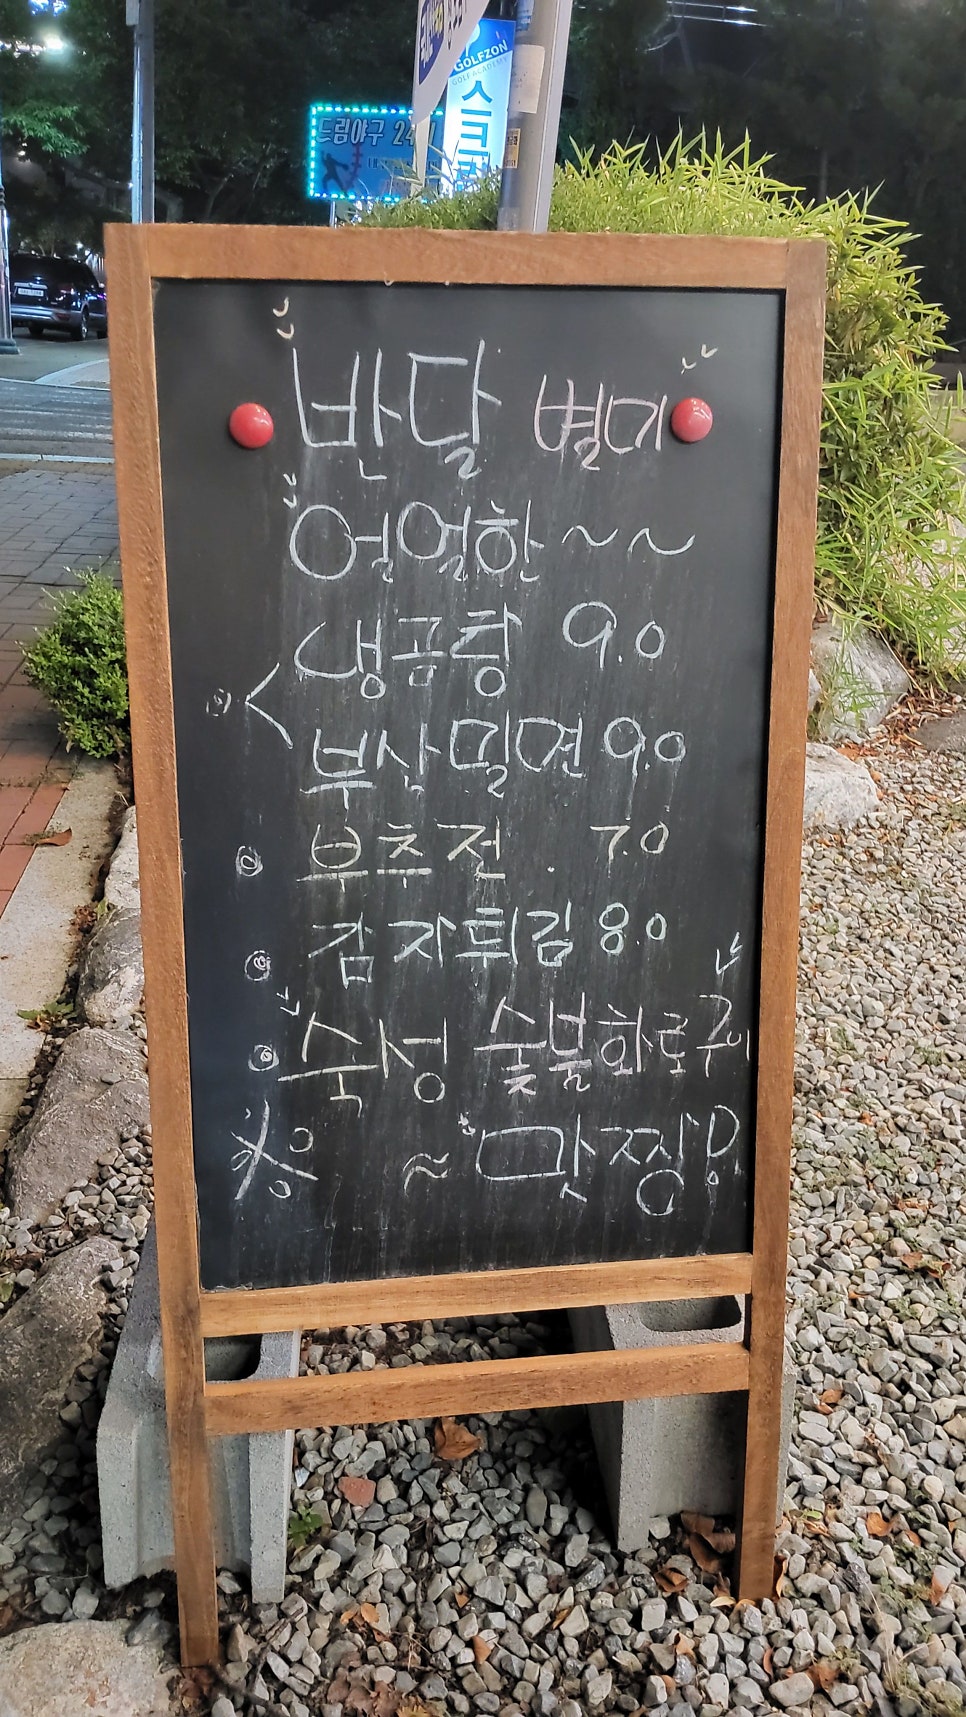 GOLFZON
GOLF ACADEMY
스크린
드림야구 24시
반달 별미
얼얼한 ~~
생곰탕 9.0
부산밀면 9.0
부추전 . 7.0
감자튀김 8.0
숙성 숯불화로구이
※ ~ 맛짱임